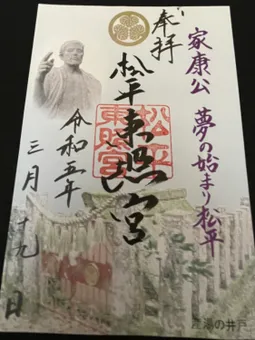 家康公 夢の始まり松平
奉拝
松平東照宮
松平
東照宮
令和五年
三月十九日
産湯の井戸